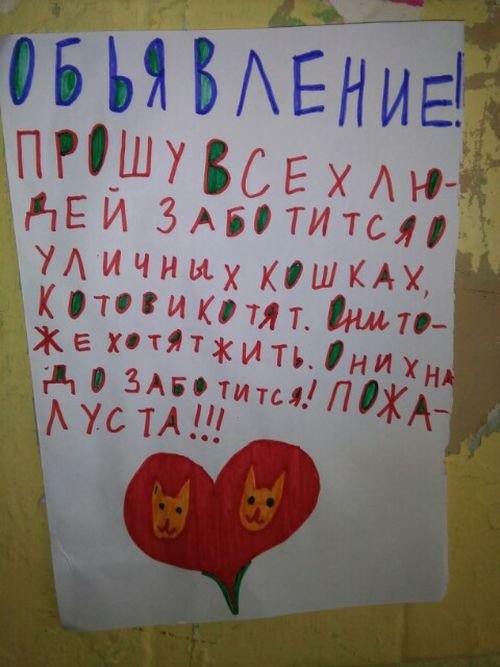 ОБЬЯВЛЕНИЕ!
ПРОШУ ВСЕХ ЛЮ-
ДЕЙ ЗАБОТИТСЯ О
УЛИЧНЫХ КОШКАХ,
КОТОВ И КОТЯТ. ОНИ ТО-
ЖЕ ХОТЯТ ЖИТЬ. О НИХ НА
ДО ЗАБОТИТСЯ! ПОЖА-
ЛУСТА!!!